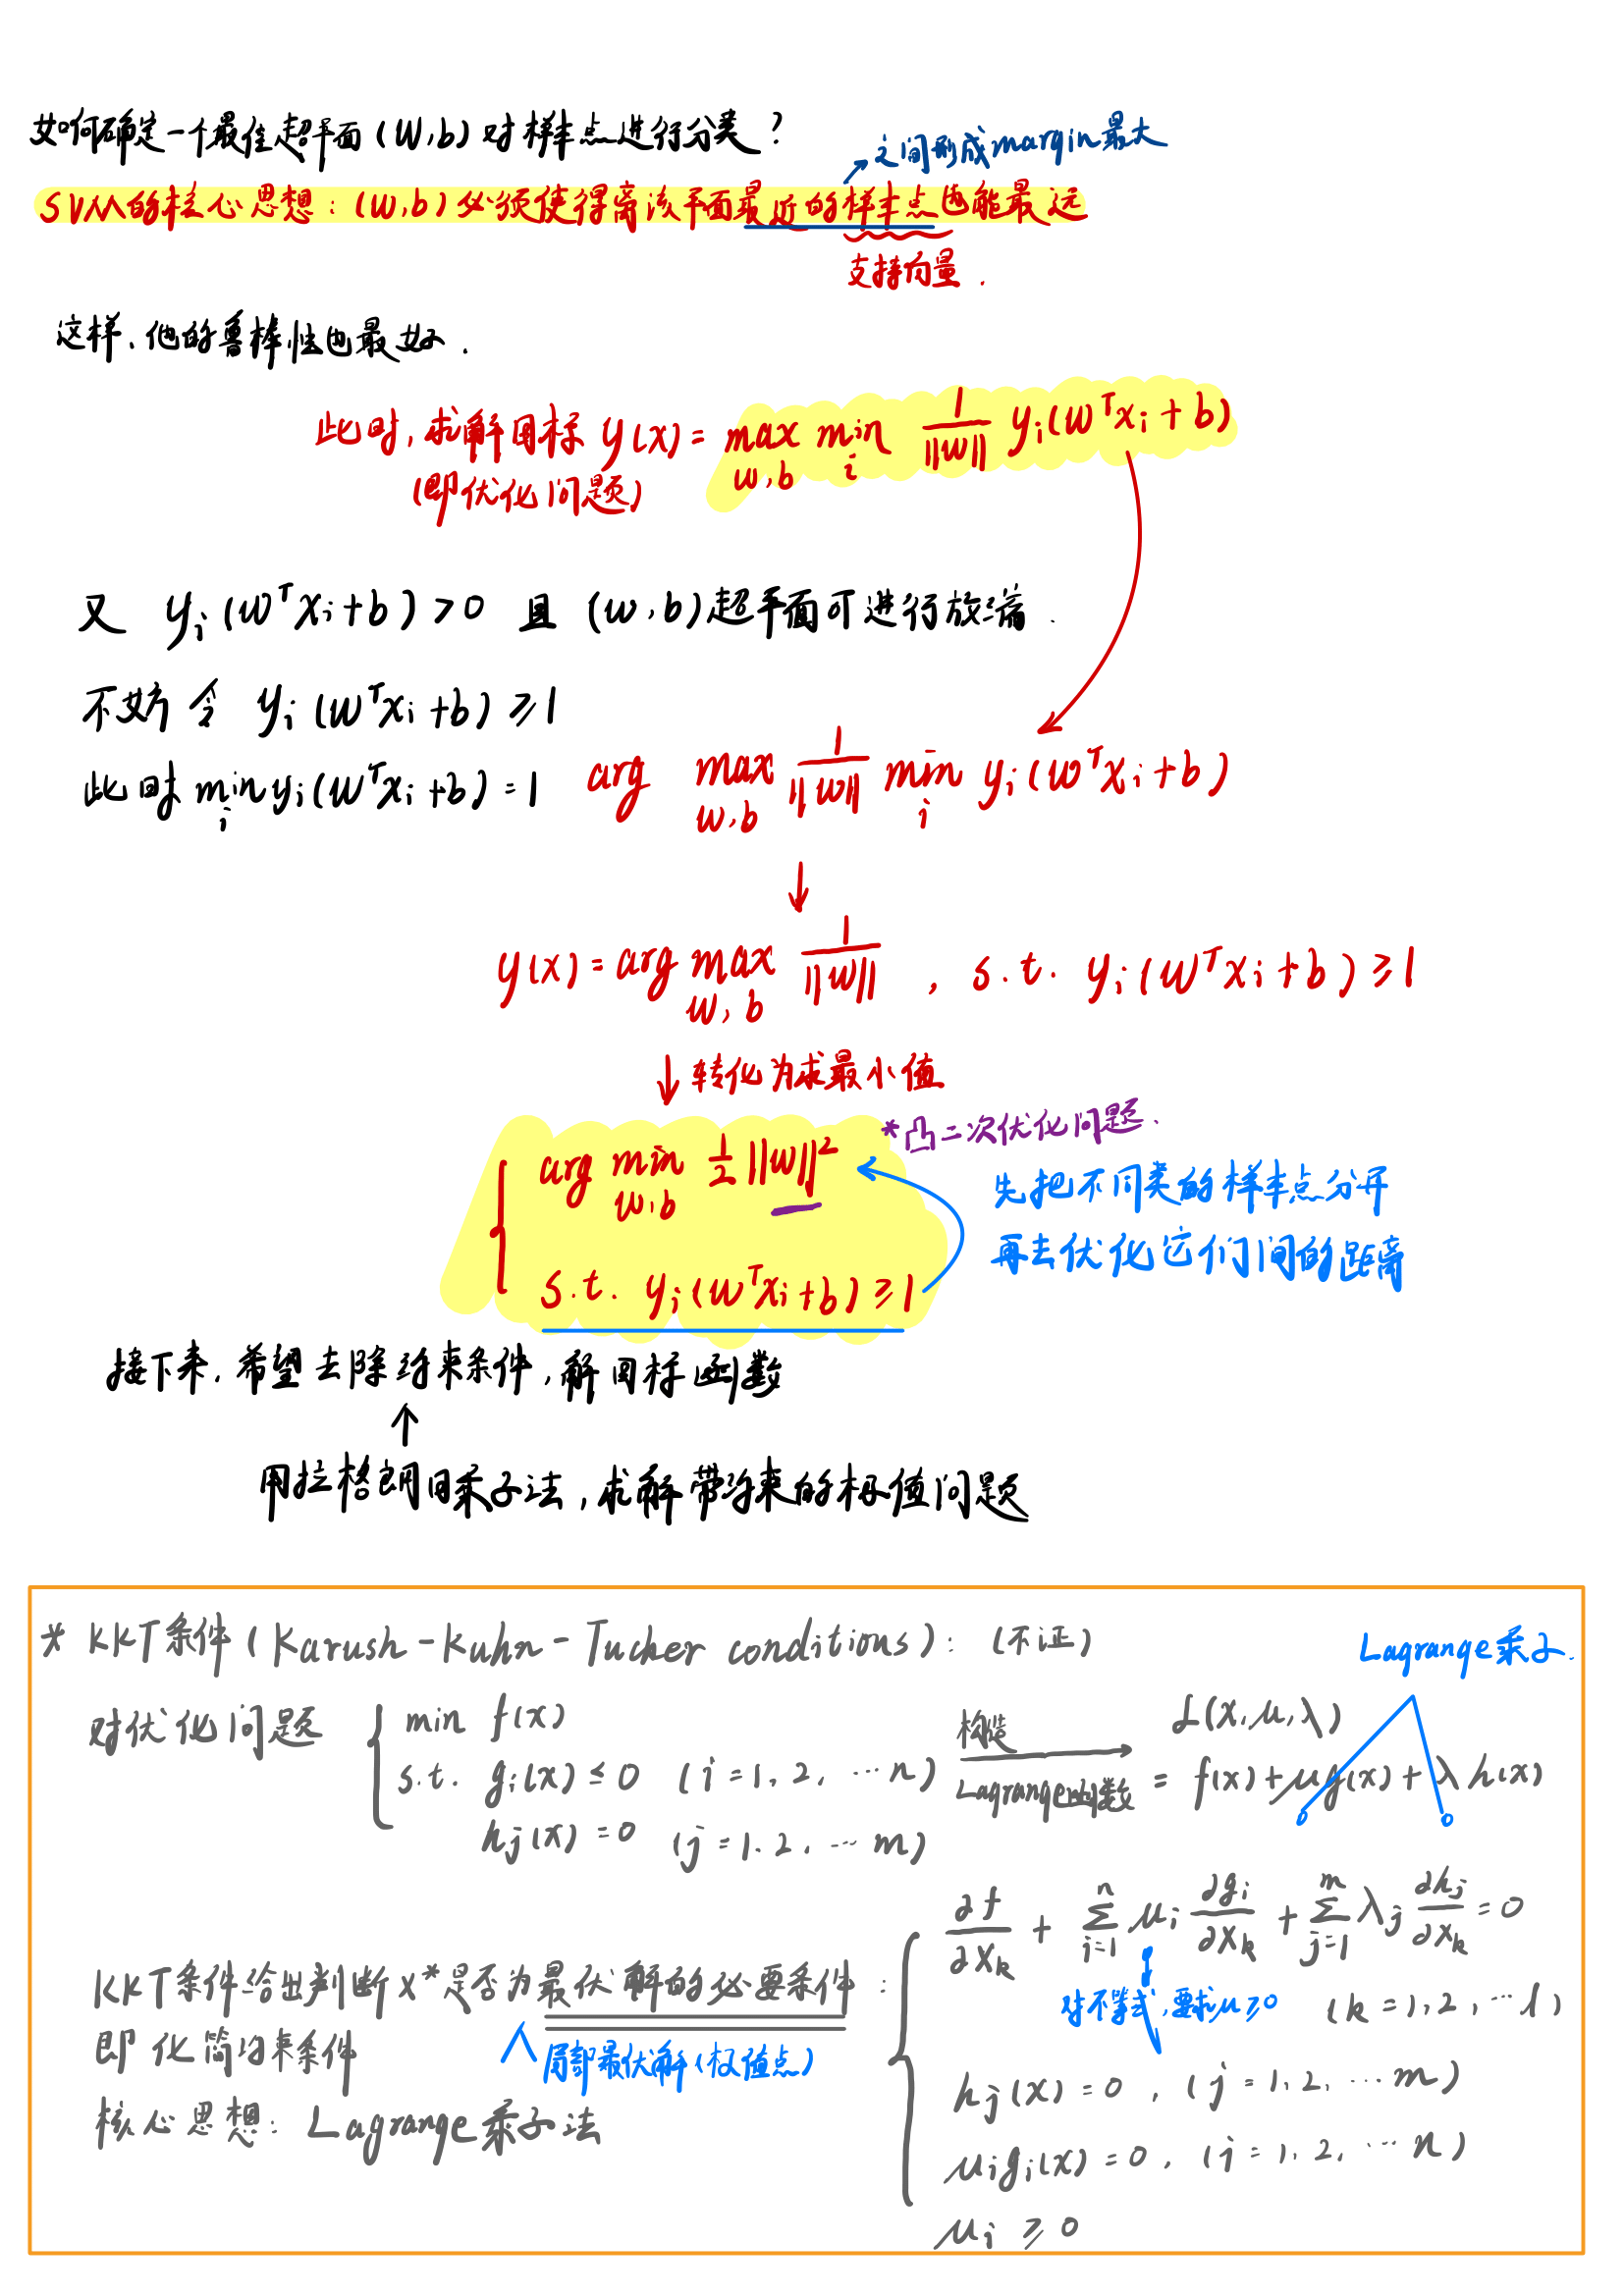 如何确定一个最佳超平面(W,b)对样本点进行分类?
→之间形成margin最大
SVM的核心思想:(W,b)必须使得离该平面最近的样本点也能最远
支持向量.
这样,他的鲁棒性也最好.
此时,求解目标 y(x) = max_{w,b} min_i \frac{1}{||w||} y_i(w^T x_i + b)
(即优化问题)
又 y_i(w^T x_i+b)>0 且 (w,b)超平面可进行放缩.
不妨令 y_i(w^T x_i+b)≥1
此时 min_i y_i(w^T x_i+b)=1
arg max_{w,b} \frac{1}{||w||} min_i y_i(w^T x_i+b)
↓
y(x)=arg max_{w,b} \frac{1}{||w||} , s.t. y_i(w^T x_i+b)≥1
↓转化为求最小值
*凸二次优化问题.
arg min_{w,b} \frac{1}{2}||w||^2
先把不同类的样本点分开
再去优化它们间的距离
s.t. y_i(w^T x_i+b)≥1
接下来,希望去除约束条件,解目标函数
↑
用拉格朗日乘子法,求解带约束的极值问题
* KKT条件(Karush-Kuhn-Tucker conditions):(不证)
Lagrange乘子.
对优化问题
min f(x)
s.t. g_i(x)≤0 (i=1,2,…n)
h_j(x)=0 (j=1,2,…m)
构造
Lagrange函数
L(x,μ,λ)
= f(x)+μg(x)+λh(x)
KKT条件给出判断x*是否为最优解的必要条件:
局部最优解(极值点)
即化简约束条件
核心思想: Lagrange乘子法
\frac{∂f}{∂x_k} + \sum_{i=1}^{n} μ_i \frac{∂g_i}{∂x_k} + \sum_{j=1}^{m} λ_j \frac{∂h_j}{∂x_k} = 0
对不等式,要求μ≥0
(k=1,2,…l)
h_j(x)=0, (j=1,2,…m)
μ_i g_i(x)=0, (i=1,2,…n)
μ_i ≥ 0